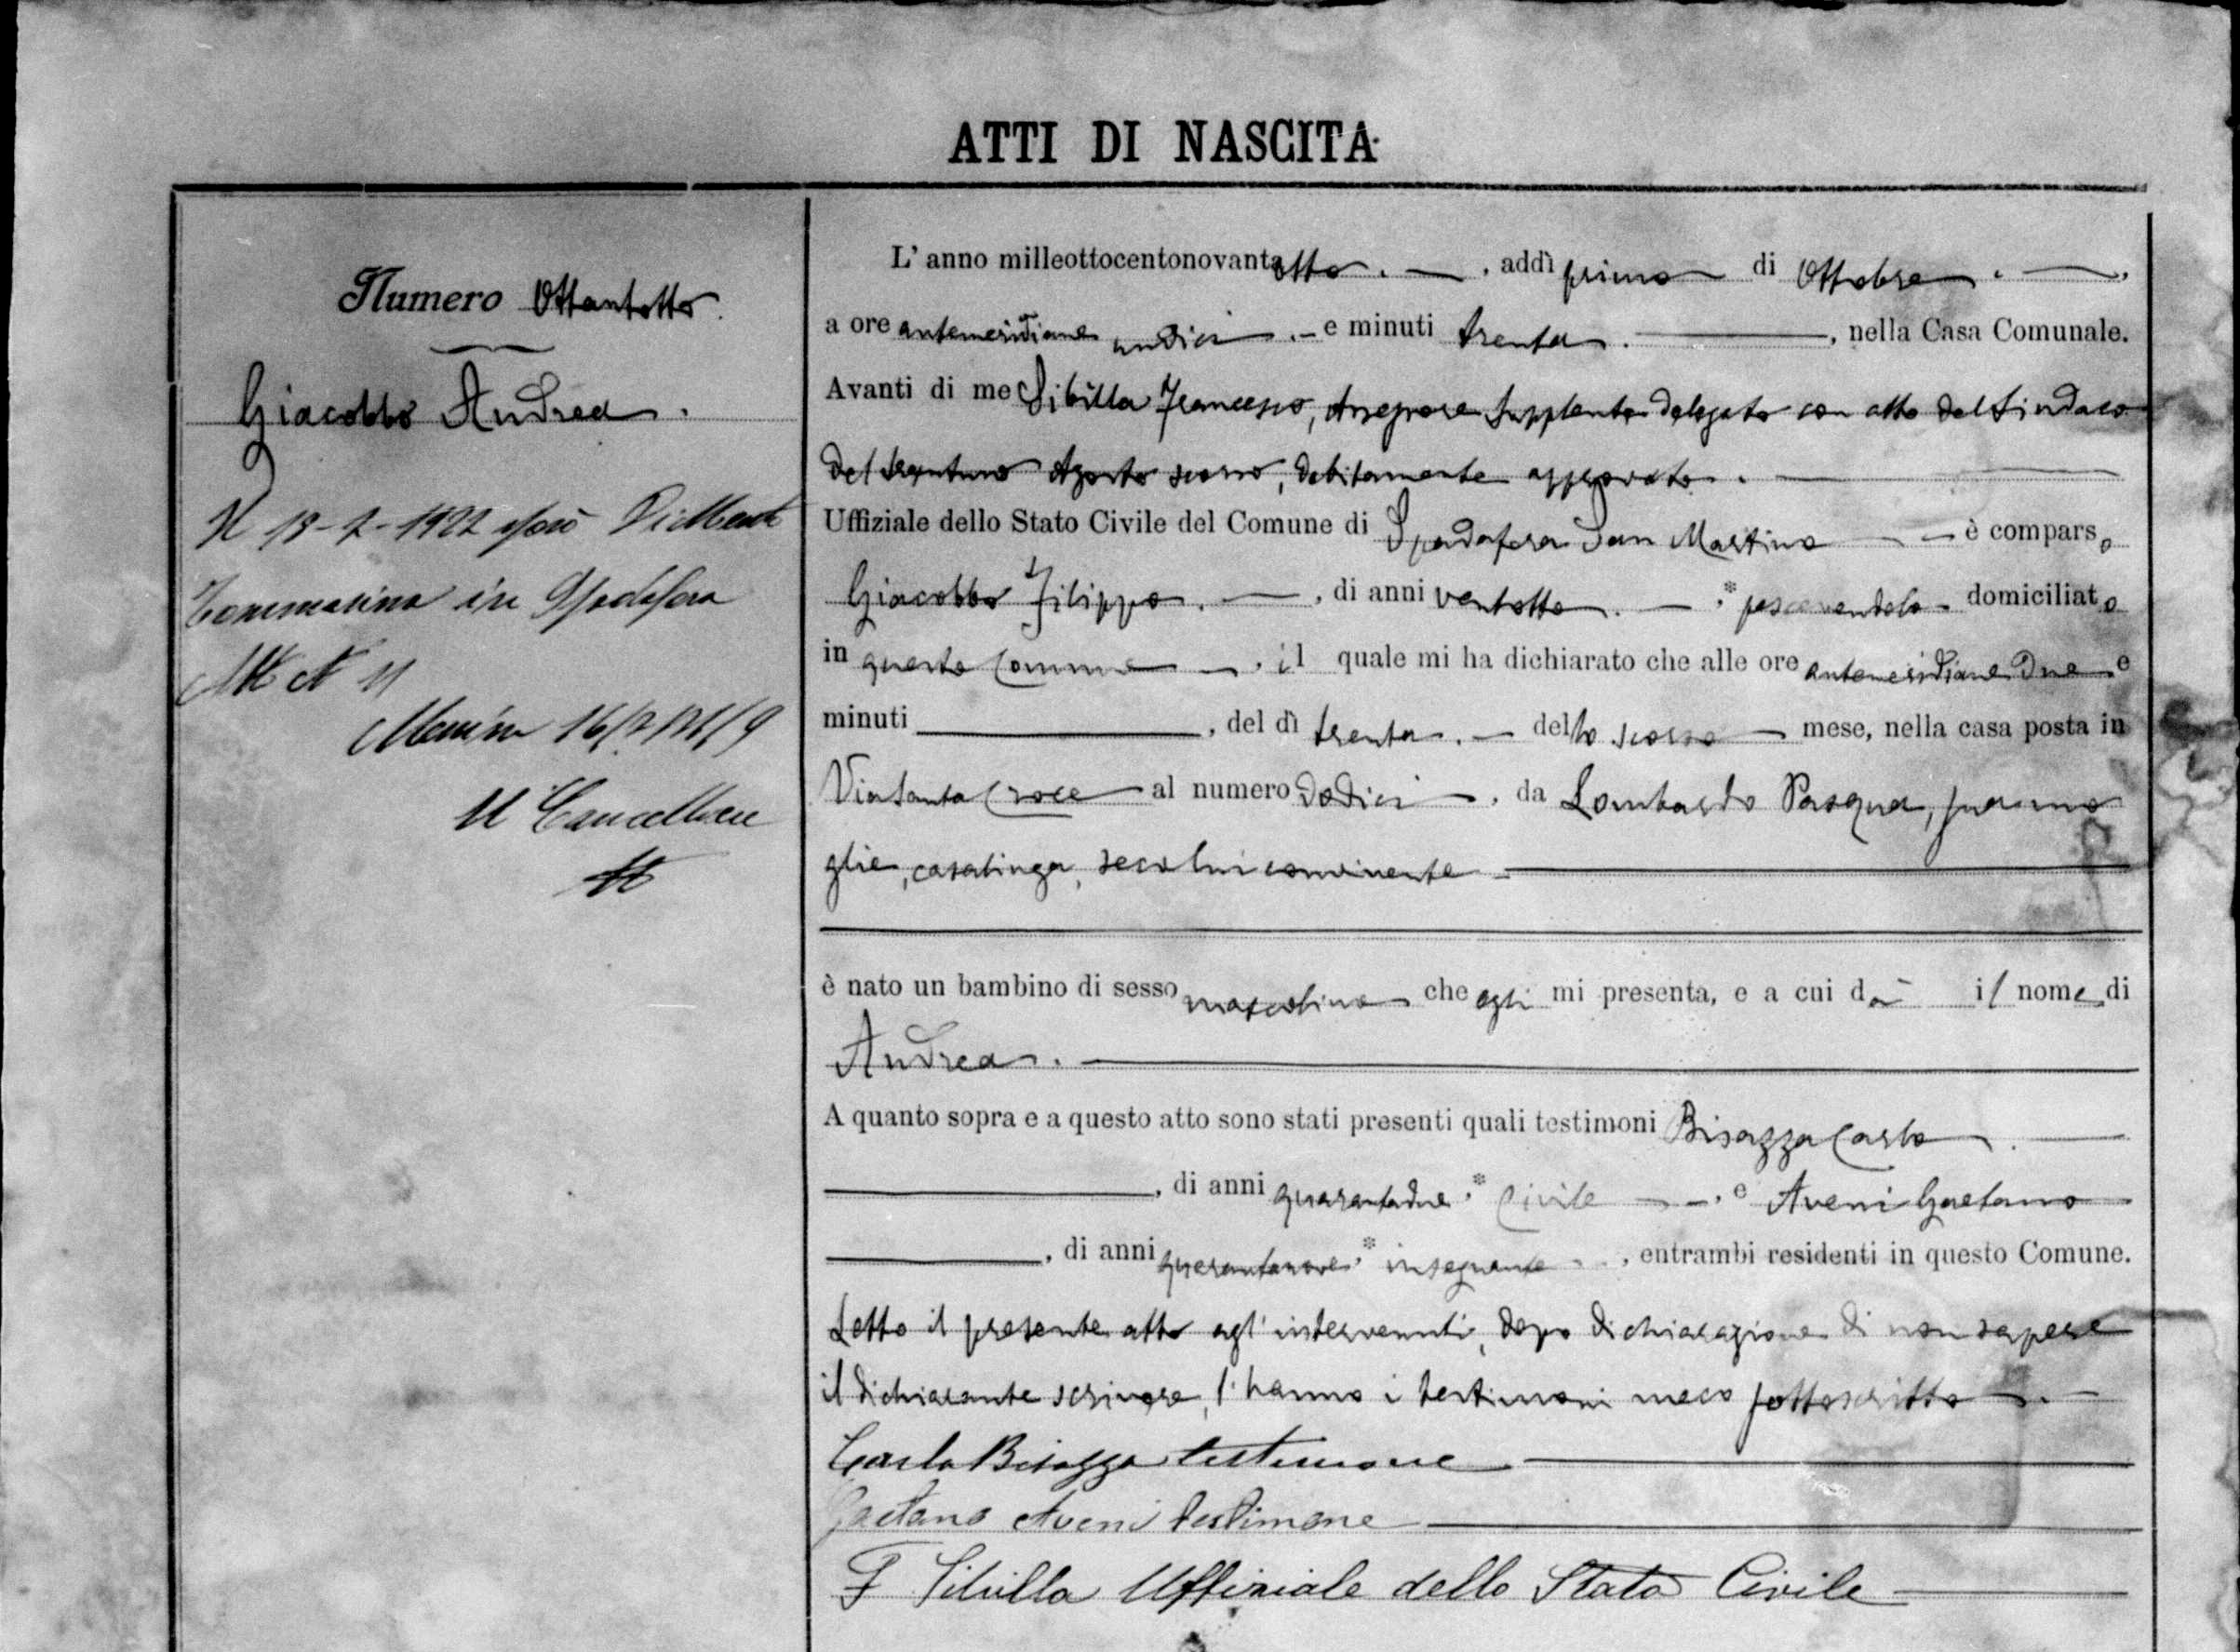 ATTI DI NASCITA
Numero Ottantotto.
Giacobbo Andrea.
Il 18-2-1922 sposò Di Mento
Tommasina in Spadafora
Att N 11
Messina 16/2/
Il Cancelliere
L'anno milleottocentonovantotto. , addì primo di Ottobre.
a ore antemeridiane undici. e minuti trenta. , nella Casa Comunale.
Avanti di me Sibilla Francesco, Assessore Supplente delegato con atto del Sindaco
del trentuno Agosto scorso, debitamente approvato.
Uffiziale dello Stato Civile del Comune di Spadafora San Martino è comparso
Giacobbo Filippo. , di anni ventotto. , * pescivendolo domiciliato
in questo Comune , il quale mi ha dichiarato che alle ore antemeridiane due e
minuti , del dì trenta. dello scorso mese, nella casa posta in
Via Santa Croce al numero dodici , da Lombardo Pasqua, sua mo
glie, casalinga, seco lui convivente
è nato un bambino di sesso mascolino che egli mi presenta, e a cui dà il nome di
Andrea.
A quanto sopra e a questo atto sono stati presenti quali testimoni Bisazza Carlo.
, di anni quarantadue, * Civile , e Aveni Gaetano
, di anni quarantanove, * insegnante , entrambi residenti in questo Comune.
Letto il presente atto agl'intervenuti, dopo dichiarazione di non sapere
il dichiarante scrivere, l'hanno i testimoni meco sottoscritto.
Carlo Bisazza testimone
Gaetano Aveni testimone
F Sibilla Uffiziale dello Stato Civile